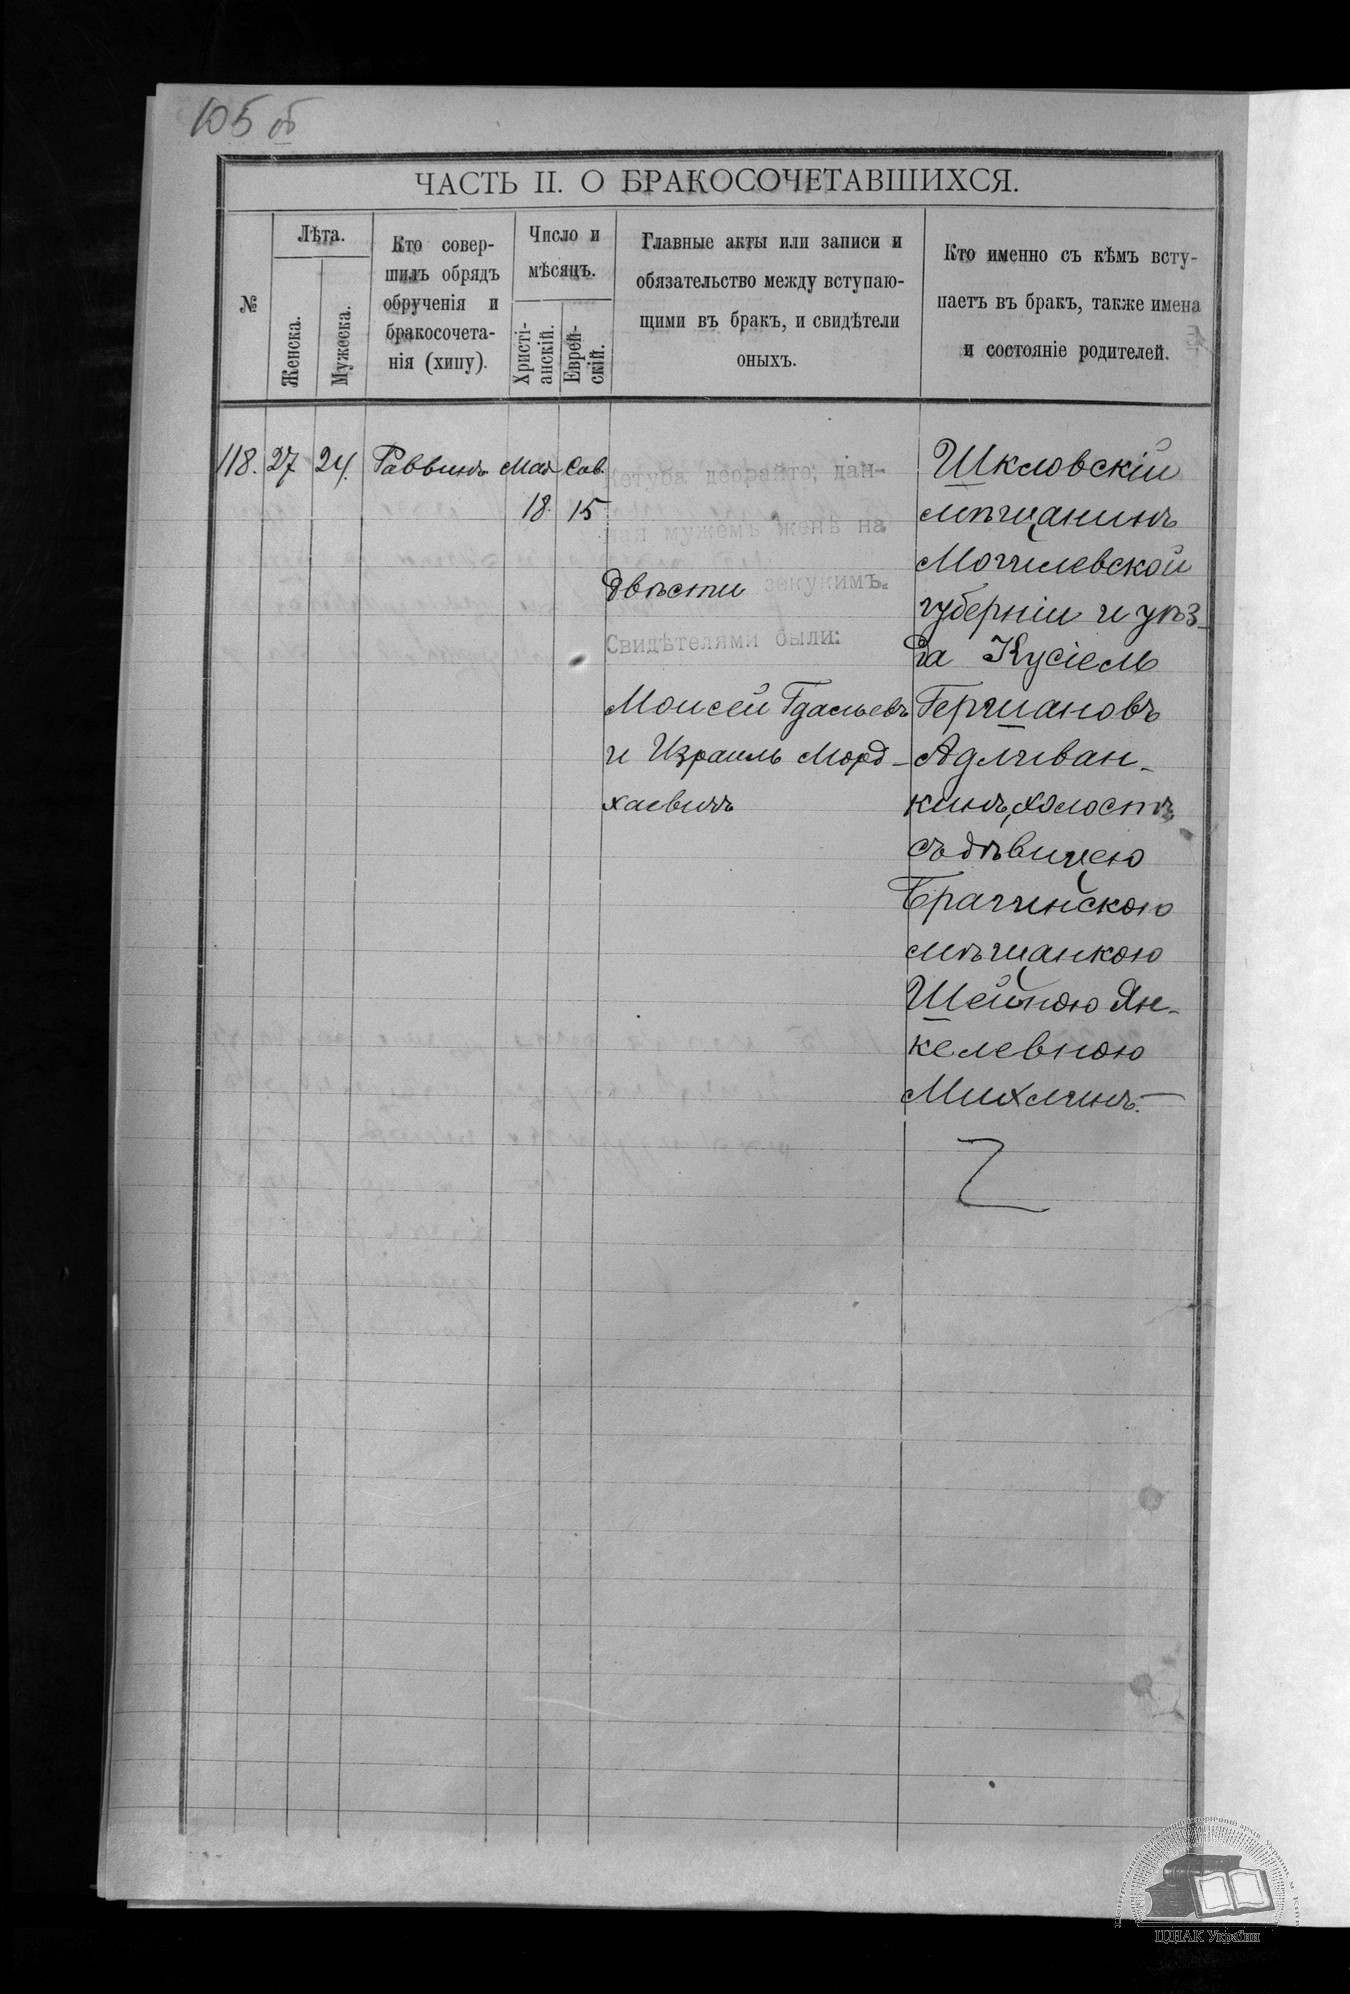 105 об
ЧАСТЬ II. О БРАКОСОЧЕТАВШИХСЯ.
№
Лѣта.
Женска.
Мужеска.
Кто совер-
шилъ обрядъ
обрученія и
бракосочета-
нія (хипу).
Число и
мѣсяцъ.
Христі-
анскій.
Еврей-
скій.
Главные акты или записи и
обязательство между вступаю-
щими въ бракъ, и свидѣтели
оныхъ.
Кто именно съ кѣмъ всту-
паетъ въ бракъ, также имена
и состояніе родителей.
118. 27 24. Раввинъ Мая 18. Сив. 15
Кетуба деорайто, дан-
ная мужемъ женѣ на
двѣсти зекукимъ.
Свидѣтелями были:
Моисей Гдальевъ
и Израиль Морд-
хаевичъ
Шкловскій
мѣщанинъ
Могилевской
губерніи и уѣз-
да Кусіель
Гершановъ
Адливан-
кинъ, холостъ
съ дѣвицею
Брагинскою
мѣщанкою
Шейною Ян-
келевною
Михлинъ.—
ЦДІАК України